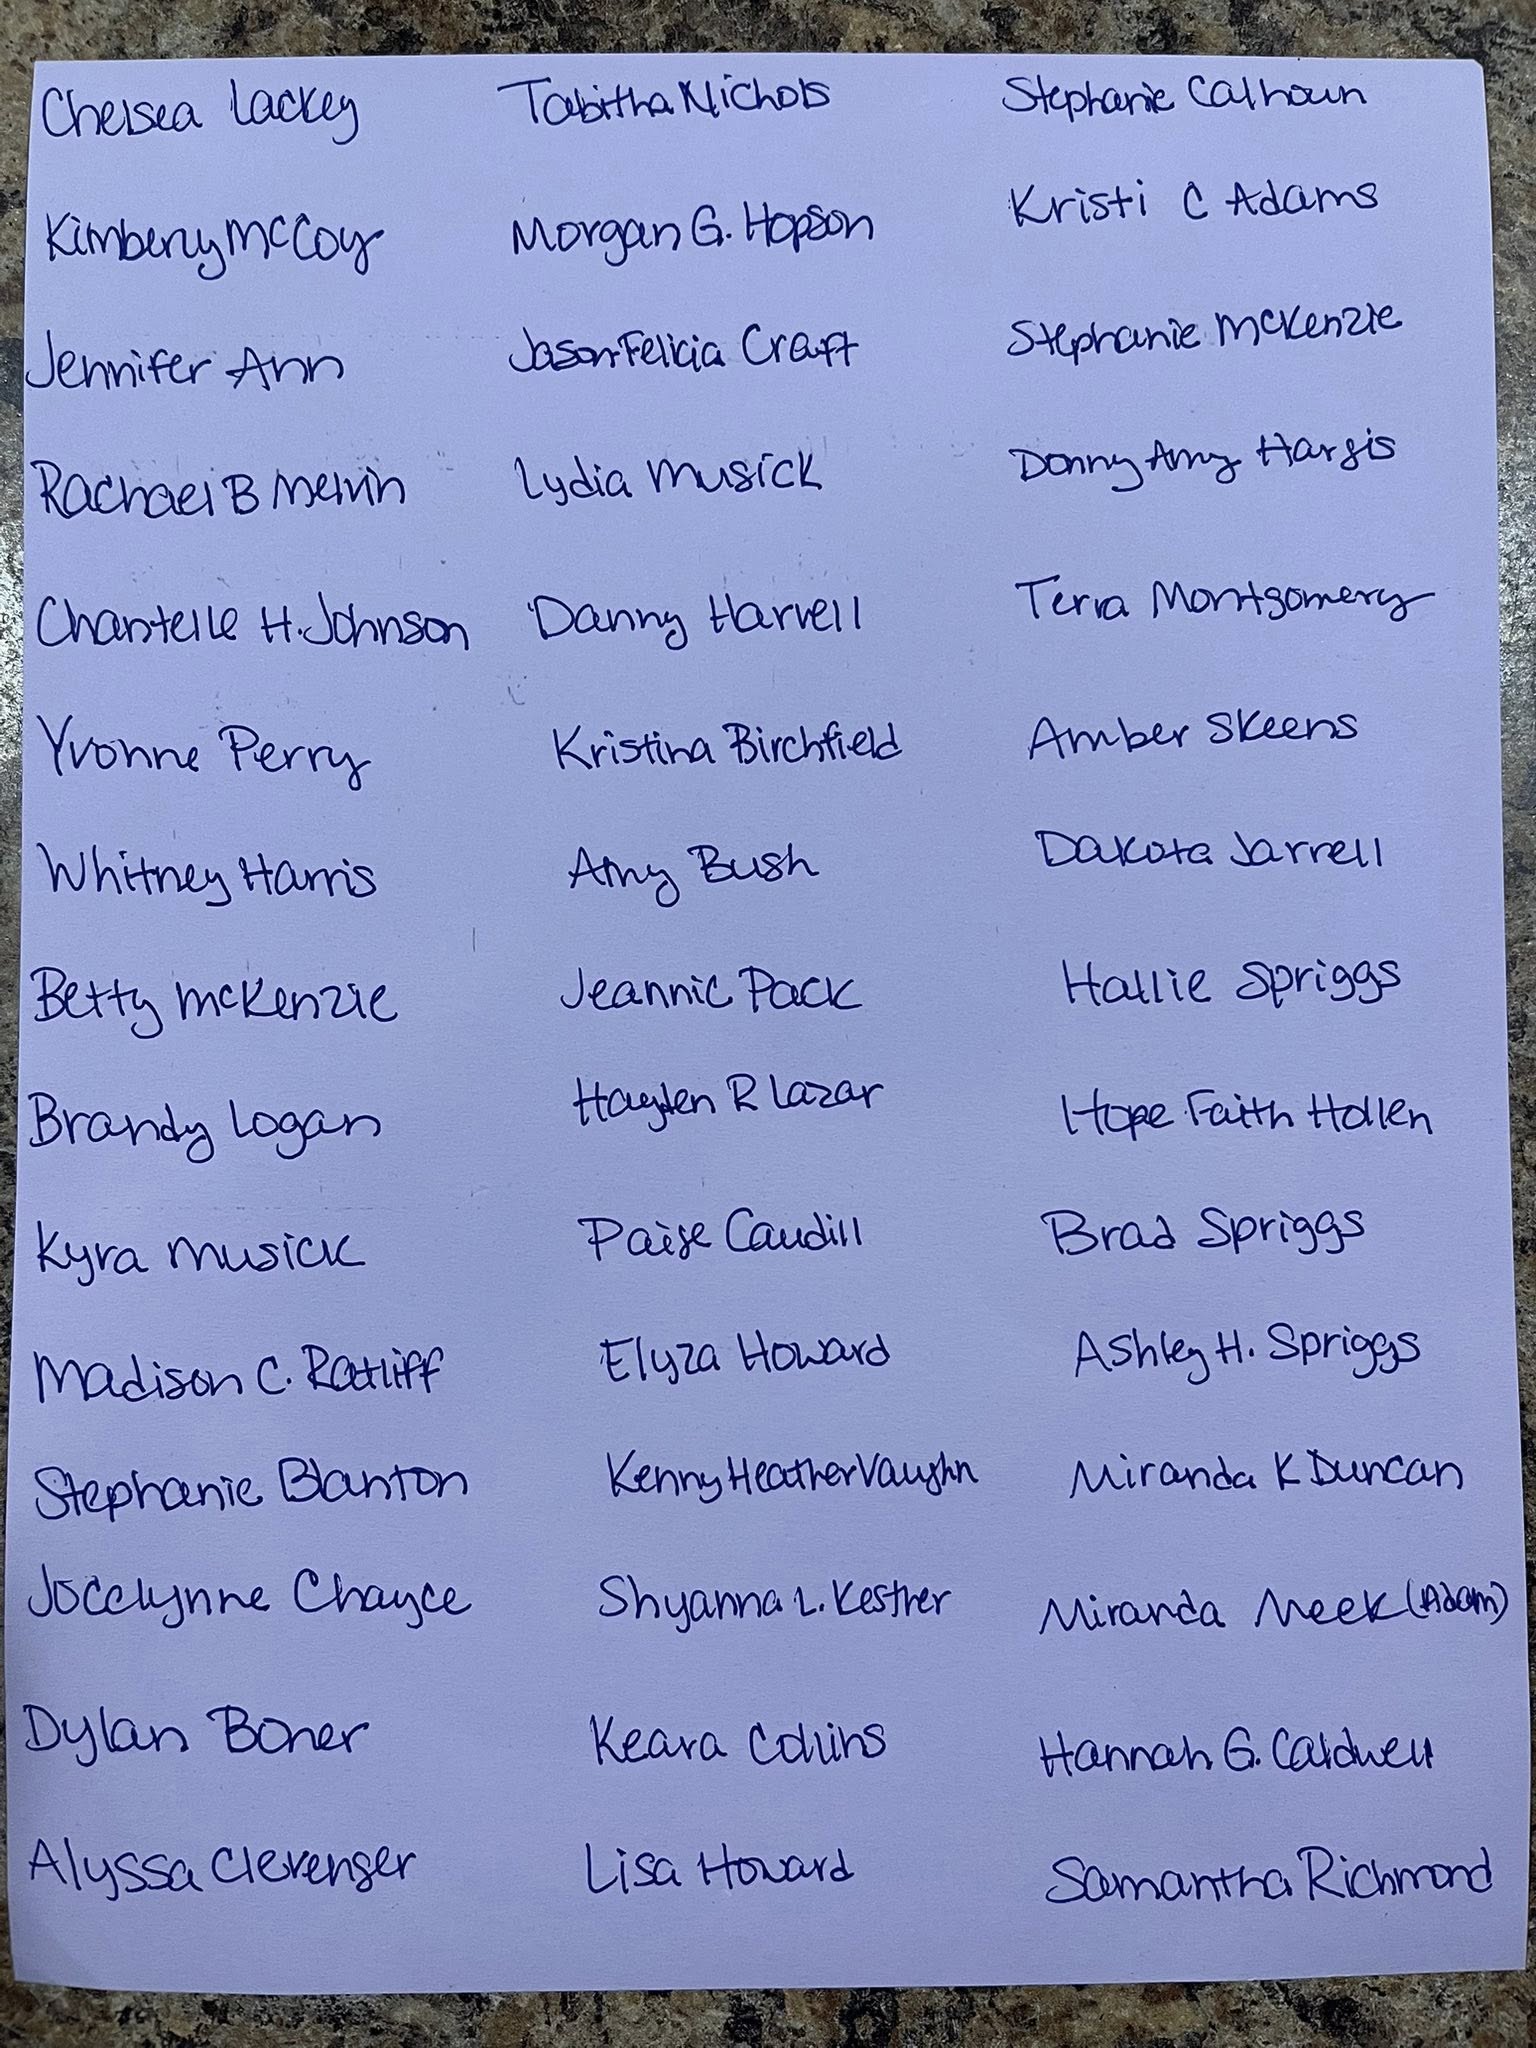 Chelsea Lackey
Kimberly McCoy
Jennifer Ann
Rachael B Melvin
Chantelle H. Johnson
Yvonne Perry
Whitney Harris
Betty McKenzie
Brandy Logan
Kyra Musick
Madison C. Ratliff
Stephanie Blanton
Jocelynne Chayce
Dylan Boner
Alyssa Clevenger
Tabitha Nichols
Morgan G. Hopson
Jason Felicia Craft
Lydia Musick
Danny Harrell
Kristina Birchfield
Amy Bush
Jeannie Pack
Hayden R Lazar
Paige Caudill
Elyza Howard
Kenny Heather Vaughn
Shyanna L. Kestner
Keara Collins
Lisa Howard
Stephanie Calhoun
Kristi C Adams
Stephanie McKenzie
Donny Amy Hargis
Terra Montgomery
Amber Skeens
Dakota Jarrell
Hallie Spriggs
Hope Faith Hollen
Brad Spriggs
Ashley H. Spriggs
Miranda K Duncan
Miranda Meek (Adam)
Hannah G. Caldwell
Samantha Richmond